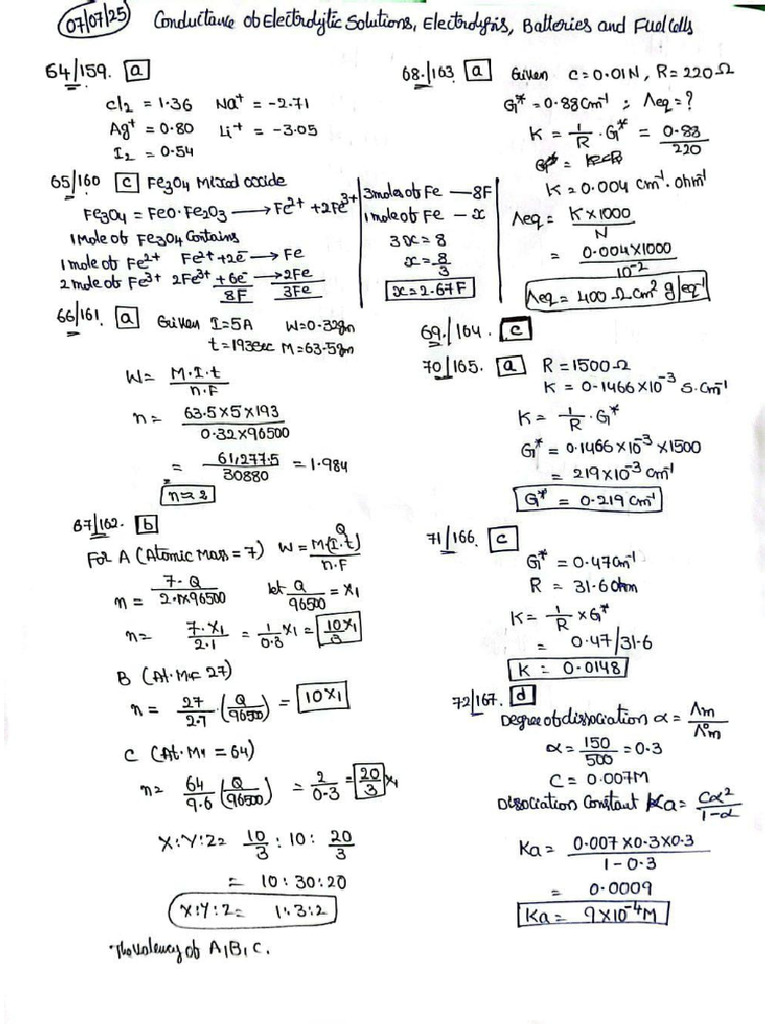 07/07/25 Conductance of Electrolytic Solutions, Electrolysis, Batteries and Fuel Cells
64/159. a
Cl2 = 1.36 Na+ = -2.71
Ag+ = 0.80 Li+ = -3.05
I2 = 0.54
65/160 c Fe3O4 Mixed oxide
Fe3O4 = FeO·Fe2O3 → Fe2+ + 2Fe3+
1 Mole of Fe3O4 Contains
1 mole of Fe2+ Fe2+ + 2e → Fe
2 mole of Fe3+ 2Fe3+ + 6e → 2Fe
8F 3Fe
3 moles of Fe — 8F
1 mole of Fe — x
3x = 8
x = 8/3
x = 2.67F
66/161. a Given I = 5A W = 0.32gm
t = 193sec M = 63.5gm
W = M·I·t / n·F
n = 63.5×5×193 / 0.32×96500
= 61,277.5 / 30880 = 1.984
n ≈ 2
67/162. b
For A (Atomic Mass = 7) W = M(I·t) / n·F
Q
n = 7·Q / 2.1×96500 let Q / 96500 = x1
n = 7·x1 / 2.1 = 1/0.3 x1 = 10x1 / 3
B (At·M = 27)
n = 27/2.7 · (Q/96500) = 10x1
C (At·M1 = 64)
n = 64/9.6 (Q/96500) = 2/0.3 = 20/3 x1
X:Y:Z = 10/3 : 10 : 20/3
= 10 : 30 : 20
X:Y:Z = 1:3:2
The valency of A, B, C.
68./163 a Given C = 0.01N, R = 220 Ω
G* = 0.88cm-1 : Λeq = ?
K = 1/R · G* = 0.88/220
K = 0.004 cm-1 · ohm-1
Λeq = K×1000 / N
= 0.004×1000 / 10-2
Λeq = 400 Ω cm2 g/eq-1
69./164. c
70/165. a R = 1500 Ω
K = 0.1466×10-3 S·cm-1
K = 1/R · G*
G* = 0.1466×10-3 ×1500
= 219×10-3 cm-1
G* = 0.219cm-1
71/166. c
G* = 0.47cm-1
R = 31.6ohm
K = 1/R × G*
= 0.47/31.6
K = 0.0148
72/167. d
Degree of dissociation α = Λm / Λ°m
α = 150/500 = 0.3
C = 0.007M
Dissociation Constant Ka = Cα2 / 1-α
Ka = 0.007×0.3×0.3 / 1-0.3
= 0.0009
Ka = 9×10-4M